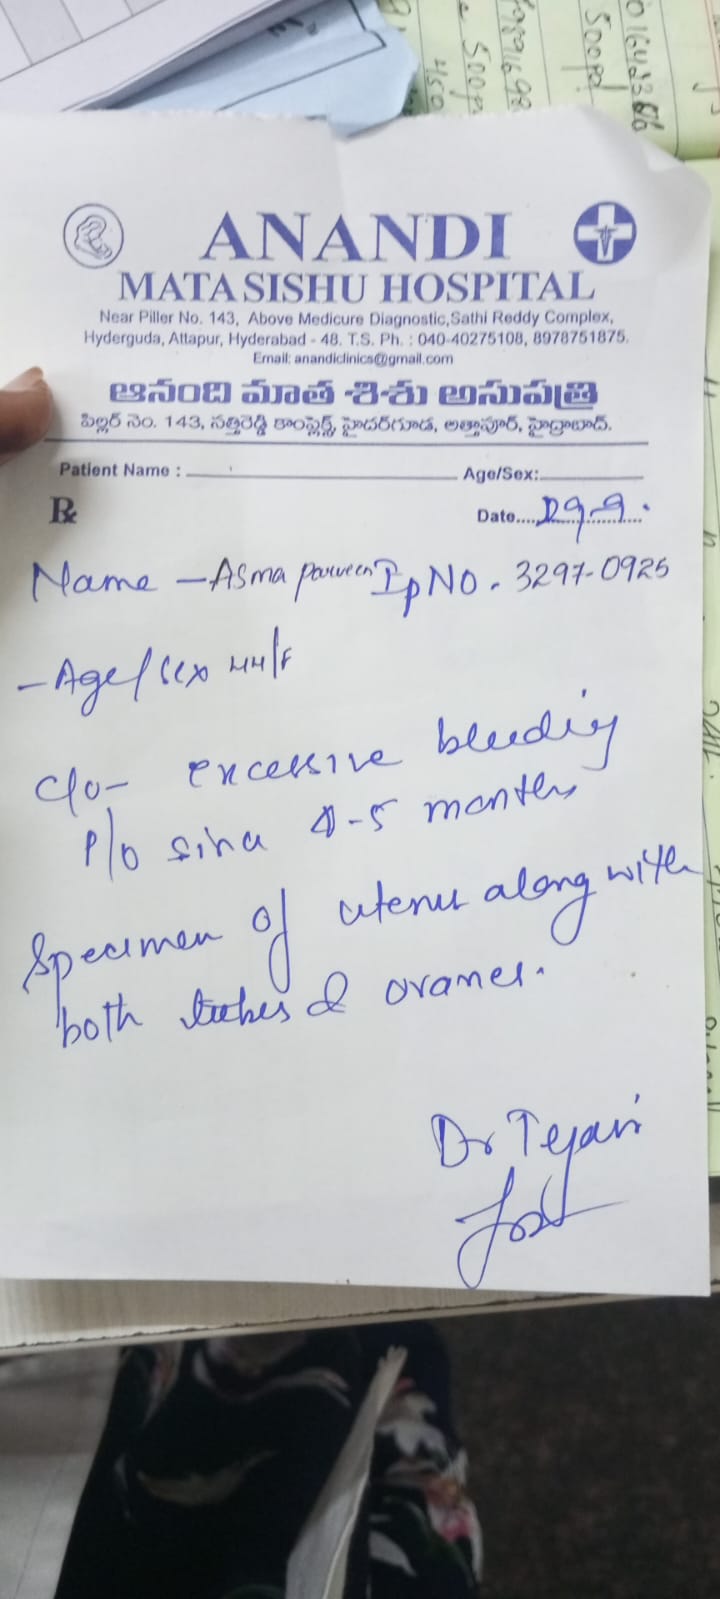 ANANDI
MATA SISHU HOSPITAL
Near Piller No. 143, Above Medicure Diagnostic,Sathi Reddy Complex,
Hyderguda, Attapur, Hyderabad - 48. T.S. Ph. : 040-40275108, 8978751875.
Email: anandiclinics@gmail.com
ఆనంది మాత శిశు ఆసుపత్రి
పిల్లర్ నెం. 143, సత్తిరెడ్డి కాంప్లెక్స్, హైదర్‌గూడ, అత్తాపూర్, హైద్రాబాద్.
Patient Name : Age/Sex:
Rx
Date.... 29-9.
Name - Asma parveen Ip NO. 3297-0925
- Age/sex 44/F
c/o- excessive bleeding
P/o since 4-5 months
Specimen of uterus along with
both tubes & ovaries.
Dr
500
450